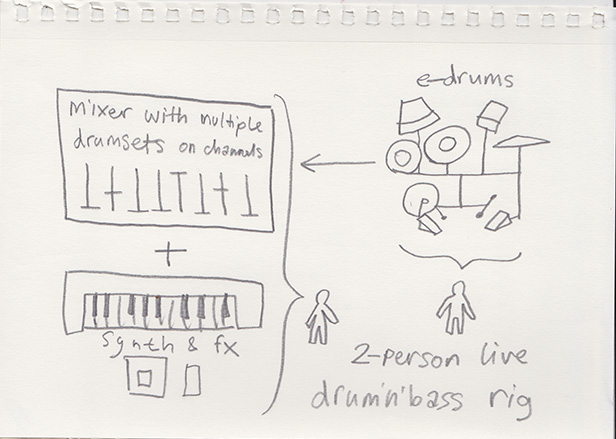 e-drums
mixer with multiple
drumsets on channels
+
synth & fx
2-person live
drum'n'bass rig